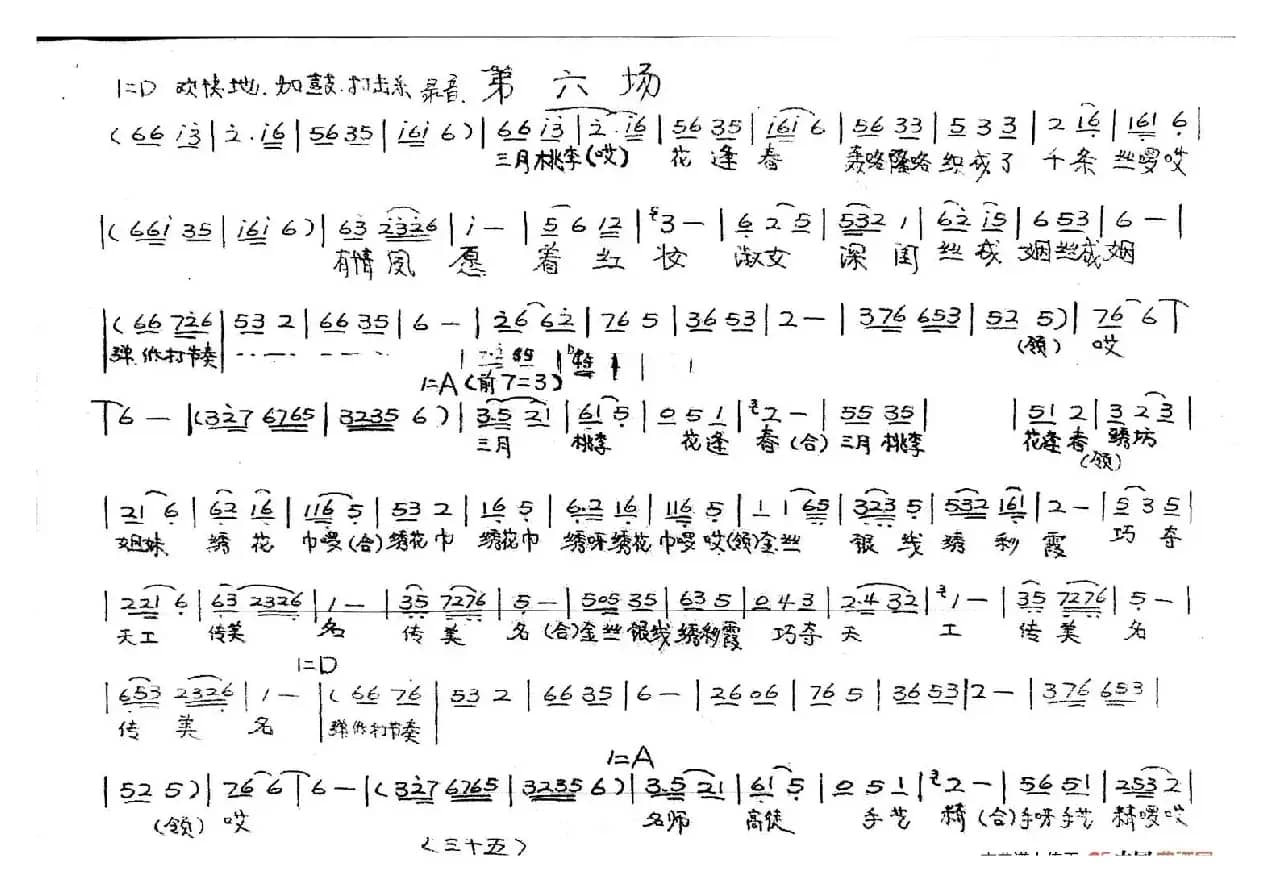 1=D 欢快地.加鼓.打击乐 录音 第六场
(66 i3|2·i6|5635|i6i 6)|66 i3|2·i6|56 35|i6i 6|56 33|5 3 3|2 i6|161 6|
三月桃李(哎) 花逢春 轰咯隆咯 织成了 千条 丝啰哎
|(66i 35|i6i 6)|63 2326|i —|5 6 12|3 —|6 2 5|532 1|62 i5|6 53|6 —|
有情 凤 愿 着 红 妆 淑女 深 闺 丝成 姻丝成姻
|(66 726|53 2|66 35|6 —|26 62|76 5|36 53|2 —|376 653|52 5)|76 6|
弹低打节奏 (领) 哎
1=A (前7=3)
6 —|(327 6765|3235 6)|3·5 21|61 5|0 5 1|2 —|55 35| |51 2|3 2 3|
三月 桃李 花逢 春 (合) 三月 桃李 花逢春 绣坊
(领)
|21 6|62 16|116 5|53 2|16 5|6·2 16|116 5|1 1 65|323 5|532 161|2 —|5 3 5|
姐妹 绣 花 巾啰 (合) 绣花巾 绣花巾 绣呀绣花巾啰哎 (领) 金丝 银线绣彩霞 巧夺
|221 6|63 2326|1 —|35 7276|5 —|505 35|63 5|0 4 3|2·4 32|1 —|35 7276|5 —|
天工 传美 名 传美 名 (合) 金丝银线绣彩霞 巧夺 天 工 传美 名
1=D
|653 2326|1 —|(66 76|53 2|66 35|6 —|26 06|76 5|36 53|2 —|376 653|
传 美 名 弹低打节奏
1=A
|52 5)|76 6|6 —|(327 6765|3235 6)|3·5 21|61 5|0 5 1|2 —|56 51|253 2|
(领) 哎 名师 高徒 手艺 精 (合) 手呀手艺 精啰哎
(三十五)